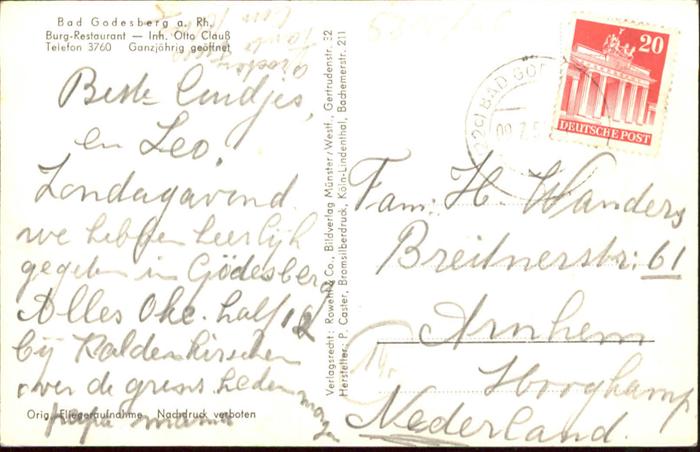 Bad Godesberg a. Rh.
Burg-Restaurant — Inh. Otto Clauß
Telefon 3760 Ganzjährig geöffnet
Beste
en Leo,
Zondagavond
we hebben heerlijk
gegeten in Godesberg
Alles Oke. half 12
bij Kaldenkirchen
over de grens heden
papa mama
Orig. Fliegeraufnahme Nachdruck verboten
Verlagsrecht: Rowent & Co., Bildverlag Münster/Westf., Gertrudenstr. 32
Hersteller: P. Caster, Bromsilberdruck, Köln-Lindenthal, Bachemerstr. 211
BAD GO
20
DEUTSCHE POST
Fam: H. Wanders
Breitnerstr: 61
Arnhem
Hooghkamp
Nederland.